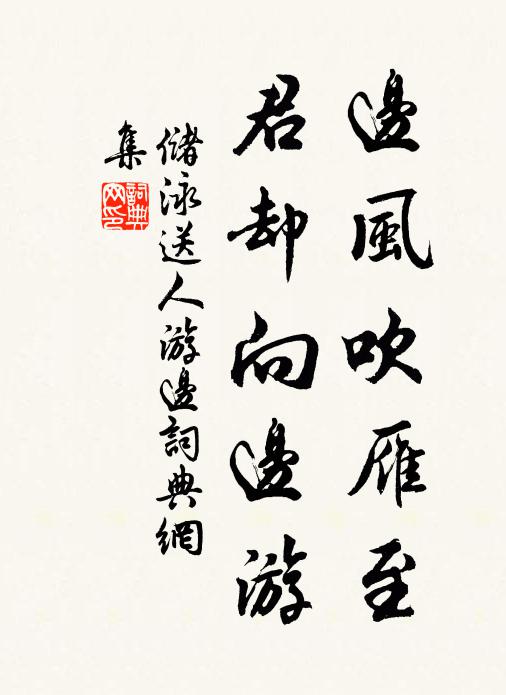 邊風吹雁至
君却向邊游
儲泳送人游邊詞典網
集
詞典网印